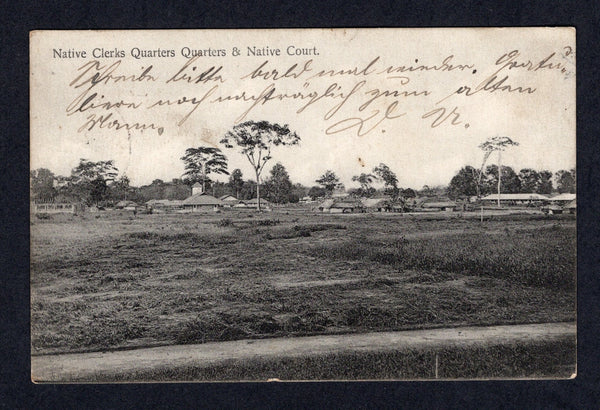 Native Clerks Quarters Quarters & Native Court.
Schreibe bitte bald mal wieder. Gratu-
liere noch nachträglich zum alten
Mann.